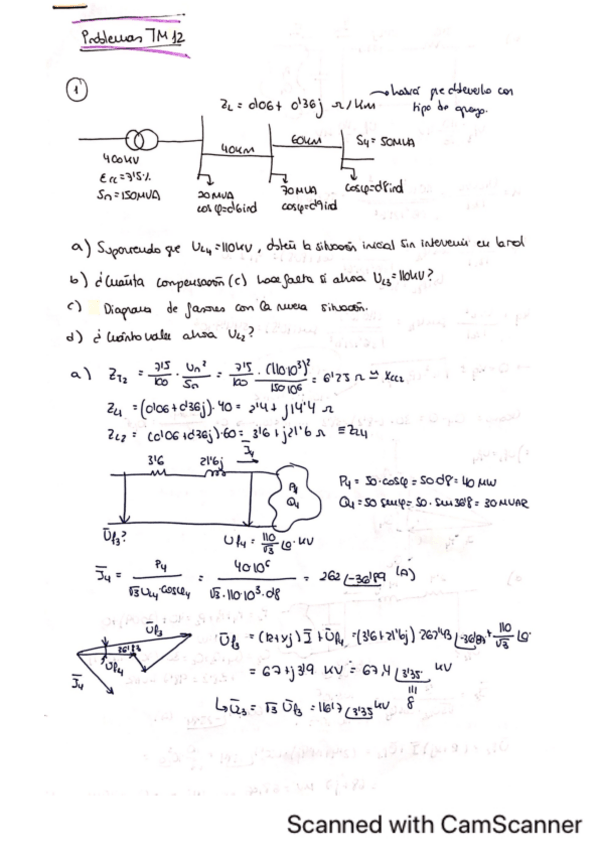 Problemas TM 12
1
ZL = 0'06 + 0'36j Ω/km → habrá que obtenerlo con
tipo de apoyo.
400kV
Ecc = 7'5%
Sn = 150MVA
40km
60km
S4 = 50MVA
20MVA
cosφ=0'6ind
70MVA
cosφ=0'9ind
cosφ=0'8ind
a) Suponiendo que UL4 = 110kV, obtén la situación inicial sin intervenir en la red
b) ¿Cuánta compensación (c) hace falta si ahora UL3 = 110kV?
c) Diagrama de fasores con la nueva situación.
d) ¿Cuánto vale ahora UL2?
a) ZT2 = 7'5/100 · Un²/Sn = 7'5/100 · (110 10³)²/150 10⁶ = 6'25 Ω ≃ Xcc2
ZL1 = (0'06 + 0'36j) · 40 = 2'4 + j14'4 Ω
ZL2 = (0'06 + 0'36j) · 60 = 3'6 + j21'6 Ω ≡ ZL4
3'6 21'6j I4
P4
Q4
P4 = 50 · cosφ = 50 0'8 = 40 MW
Q4 = 50 senφ = 50 · sen 36'8 = 30 MVAR
Uf3? Uf4 = 110/√3 ∠0· kV
I4 = P4/√3 UL4 cosφ4 = 40 10⁶/√3 · 110 10³ · 0'8 = 262 ∠-36'89 (A)
Uf3
36'83
Uf4
I4
Uf3 = (R + Xj) I + Uf4 = (3'6 + 21'6j) 262'43 ∠-36'89 + 110/√3 ∠0·
= 67 + j3'9 kV = 67'1 ∠3'35· kV
δ
↳ U3 = √3 Uf3 = 116'7 ∠3'35 kV
Scanned with CamScanner